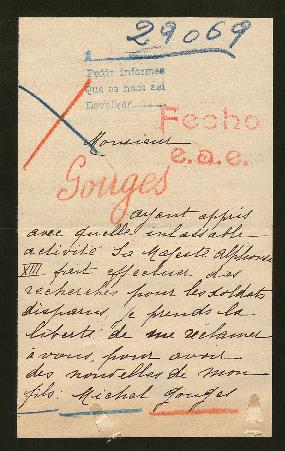 29069
A
Petit informes
Que se hace asi
Devolver
Fecho
e.a.e.
Monsieur
Gouges
ayant appris
avec quelle inlassable
activité Sa Majesté Alphonse
XIII fait effectuer des
recherches pour les soldats
disparus, je prends la
liberté de me réclamer
à vous, pour avoir
des nouvelles de mon
fils: Michel Gouges